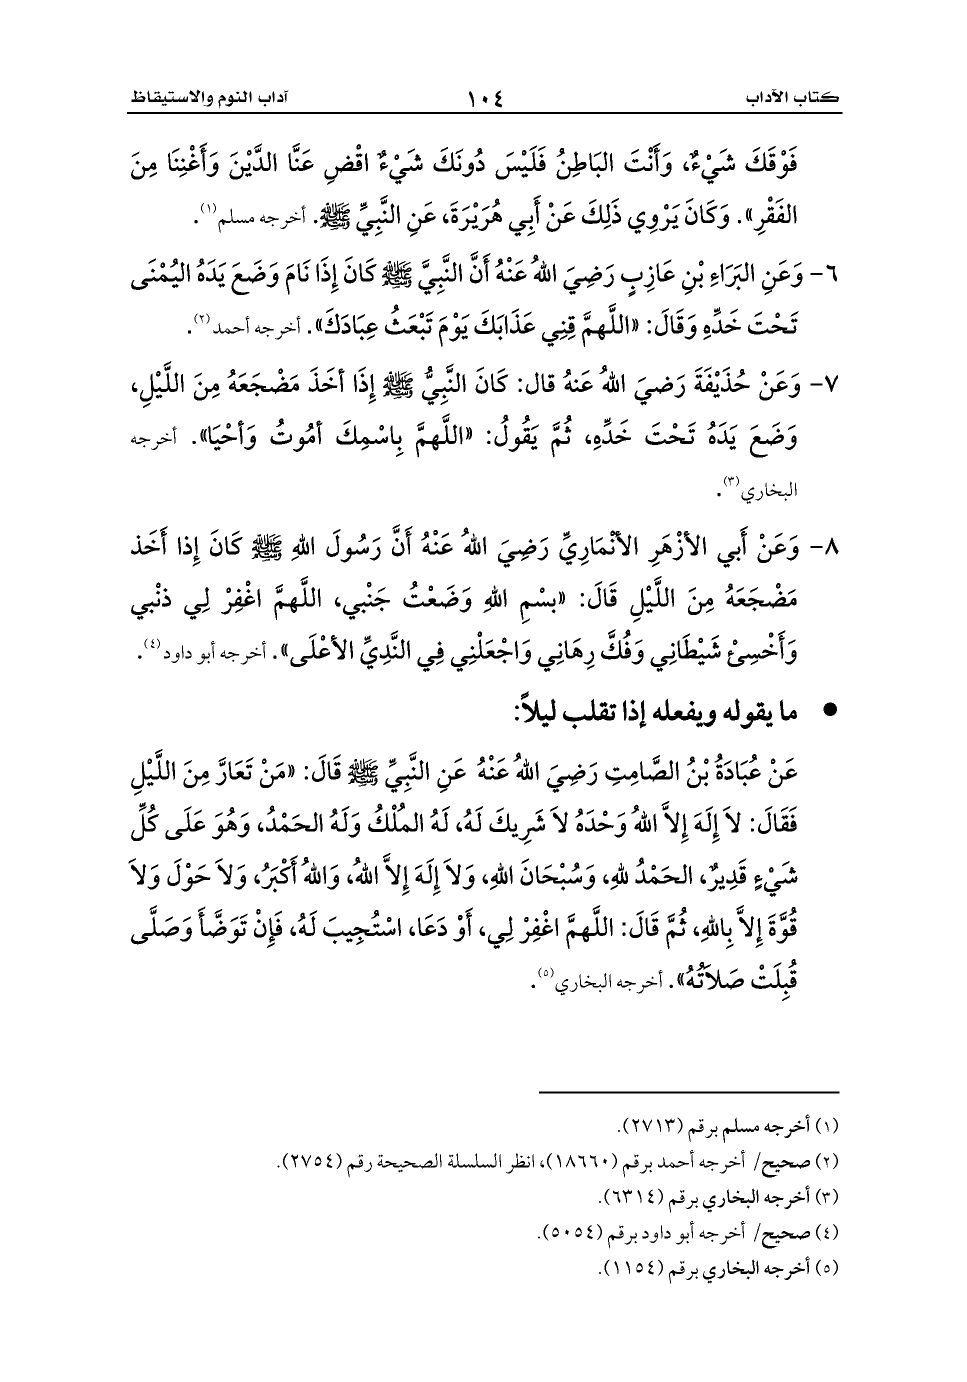 كتاب الآداب ١٠٤ آداب النوم والاستيقاظ
فَوْقَكَ شَيْءٌ، وَأَنْتَ البَاطِنُ فَلَيْسَ دُونَكَ شَيْءٌ اقْضِ عَنَّا الدَّيْنَ وَأَغْنِنَا مِنَ
الفَقْرِ». وَكَانَ يَرْوِي ذَلِكَ عَنْ أَبِي هُرَيْرَةَ، عَنِ النَّبِيِّ ﷺ. أخرجه مسلم(١).
٦- وَعَنِ البَرَاءِ بْنِ عَازِبٍ رَضِيَ اللهُ عَنْهُ أَنَّ النَّبِيَّ ﷺ كَانَ إِذَا نَامَ وَضَعَ يَدَهُ اليُمْنَى
تَحْتَ خَدِّهِ وَقَالَ: «اللَّهمَّ قِنِي عَذَابَكَ يَوْمَ تَبْعَثُ عِبَادَكَ». أخرجه أحمد(٢).
٧- وَعَنْ حُذَيْفَةَ رَضيَ اللهُ عَنهُ قال: كَانَ النَّبِيُّ ﷺ إِذَا أخَذَ مَضْجَعَهُ مِنَ اللَّيْلِ،
وَضَعَ يَدَهُ تَحْتَ خَدِّهِ، ثُمَّ يَقُولُ: «اللَّهمَّ بِاسْمِكَ أمُوتُ وَأحْيَا». أخرجه
البخاري(٣).
٨- وَعَنْ أَبي الأزْهَرِ الأنْمَارِيِّ رَضِيَ اللهُ عَنْهُ أَنَّ رَسُولَ اللهِ ﷺ كَانَ إِذا أَخَذ
مَضْجَعَهُ مِنَ اللَّيْلِ قَالَ: «بسْمِ اللهِ وَضَعْتُ جَنْبي، اللَّهمَّ اغْفِرْ لِي ذنْبي
وَأَخْسِئْ شَيْطَانِي وَفُكَّ رِهَانِي وَاجْعَلْنِي فِي النَّدِيِّ الأعْلَى». أخرجه أبو داود(٤).
● ما يقوله ويفعله إذا تقلب ليلاً:
عَنْ عُبَادَةُ بْنُ الصَّامِتِ رَضِيَ اللهُ عَنْهُ عَنِ النَّبِيِّ ﷺ قَالَ: «مَنْ تَعَارَّ مِنَ اللَّيْلِ
فَقَالَ: لاَ إِلَهَ إِلاَّ اللهُ وَحْدَهُ لاَ شَرِيكَ لَهُ، لَهُ المُلْكُ وَلَهُ الحَمْدُ، وَهُوَ عَلَى كُلِّ
شَيْءٍ قَدِيرٌ، الحَمْدُ للهِ، وَسُبْحَانَ اللهِ، وَلاَ إِلَهَ إِلاَّ اللهُ، وَاللهُ أَكْبَرُ، وَلاَ حَوْلَ وَلاَ
قُوَّةَ إِلاَّ بِاللهِ، ثُمَّ قَالَ: اللَّهمَّ اغْفِرْ لِي، أَوْ دَعَا، اسْتُجِيبَ لَهُ، فَإِنْ تَوَضَّأَ وَصَلَّى
قُبِلَتْ صَلاَتُهُ». أخرجه البخاري(٥).
(١) أخرجه مسلم برقم (٢٧١٣).
(٢) صحيح/ أخرجه أحمد برقم (١٨٦٦٠)، انظر السلسلة الصحيحة رقم (٢٧٥٤).
(٣) أخرجه البخاري برقم (٦٣١٤).
(٤) صحيح/ أخرجه أبو داود برقم (٥٠٥٤).
(٥) أخرجه البخاري برقم (١١٥٤).